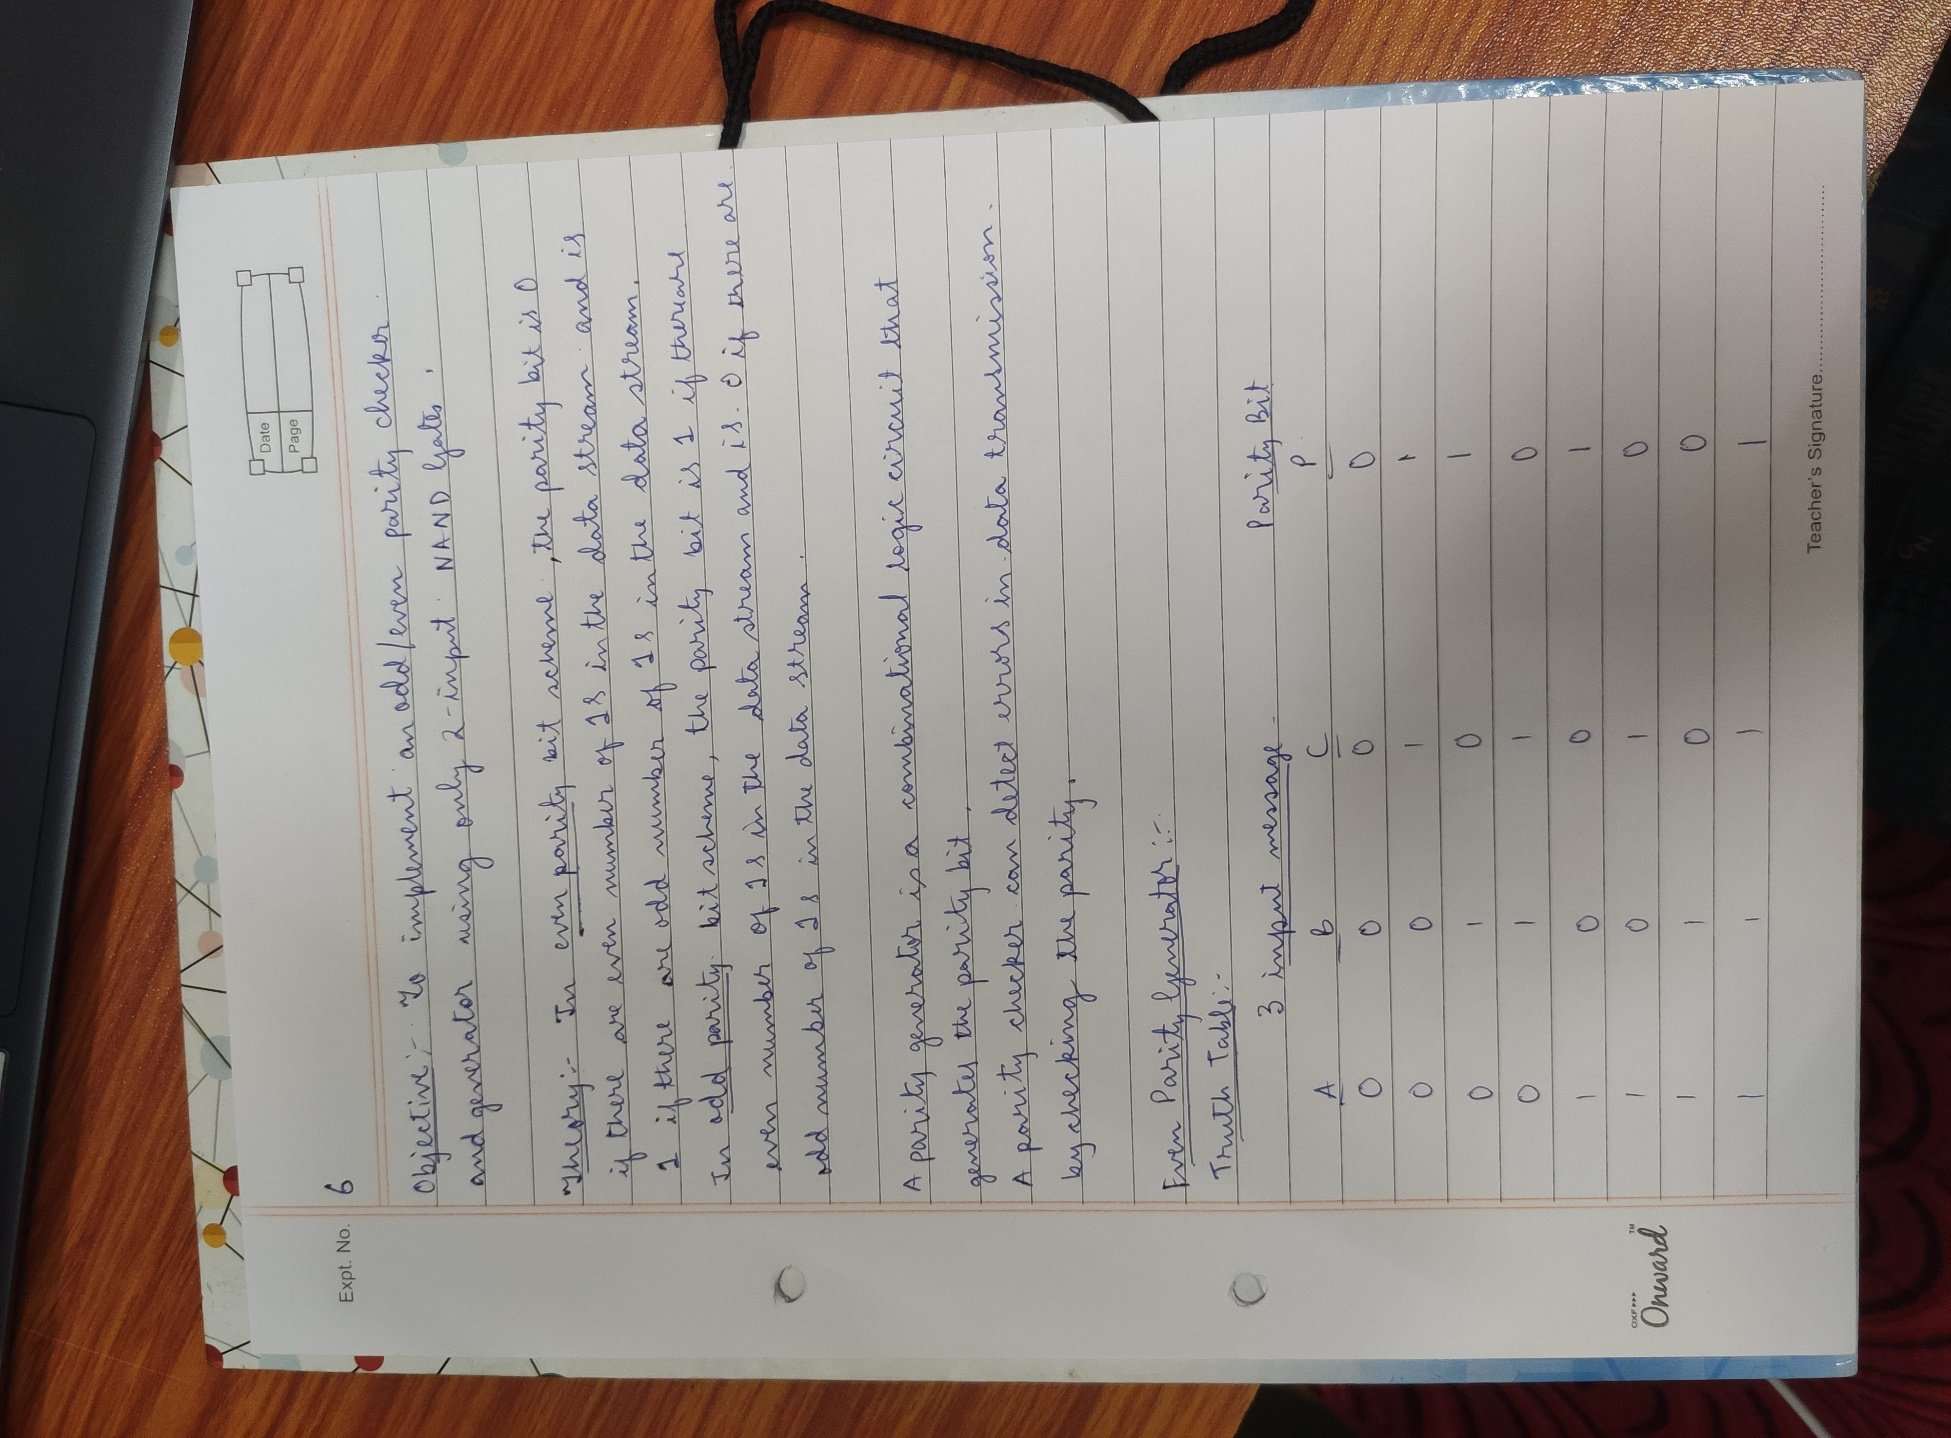 Date
Page
Expt. No. 6
Objective:- To implement an odd/even parity checker
and generator using only 2-input NAND Gates.
Theory:- In even parity bit scheme, the parity bit is 0
if there are even number of 1s in the data stream and is
1 if there are odd number of 1s in the data stream.
In odd parity bit scheme, the parity bit is 1 if thereare
even number of 1s in the data stream and is 0 if there are
odd number of 1s in the data stream.
A parity generator is a combinational logic circuit that
generates the parity bit.
A parity checker can detect errors in data transmission
by checking the parity.
Even Parity Generator:-
Truth Table:-
3 input message Parity Bit
A B C P
0 0 0 0
0 0 1 1
0 1 0 1
0 1 1 0
1 0 0 1
1 0 1 0
1 1 0 0
1 1 1 1
OXF▸▸▸
Onward™
Teacher's Signature